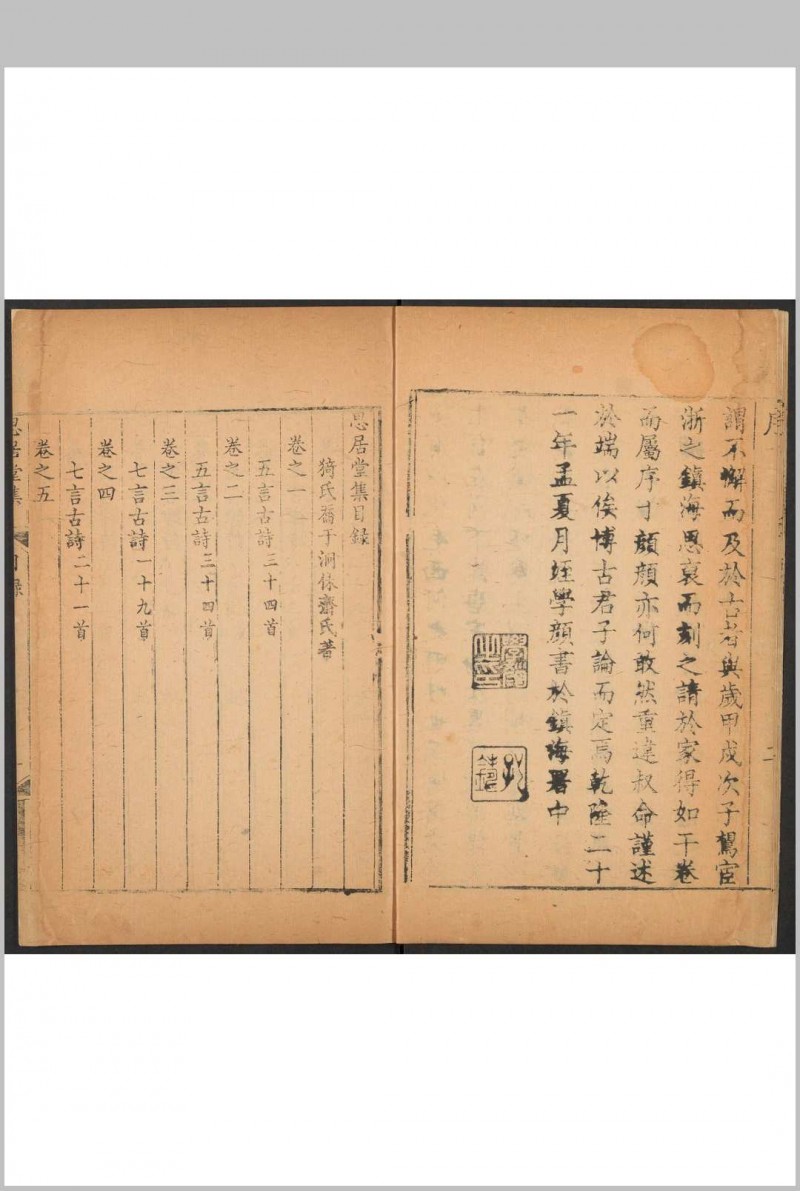 序
謂不懈而及於古者與歲甲戌次子駕宦
浙之鎮海思裒而刻之請於家得如干卷
而屬序于顏顏亦何敢然重違叔命謹述
於端以俟博古君子論而定焉乾隆二十
一年孟夏月姪學顏書於鎮海署中
思居堂集目錄
猗氏喬于泂休齋氏著
卷之一
五言古詩三十四首
卷之二
五言古詩三十四首
卷之三
七言古詩一十九首
卷之四
七言古詩二十一首
卷之五
思居堂集 目錄